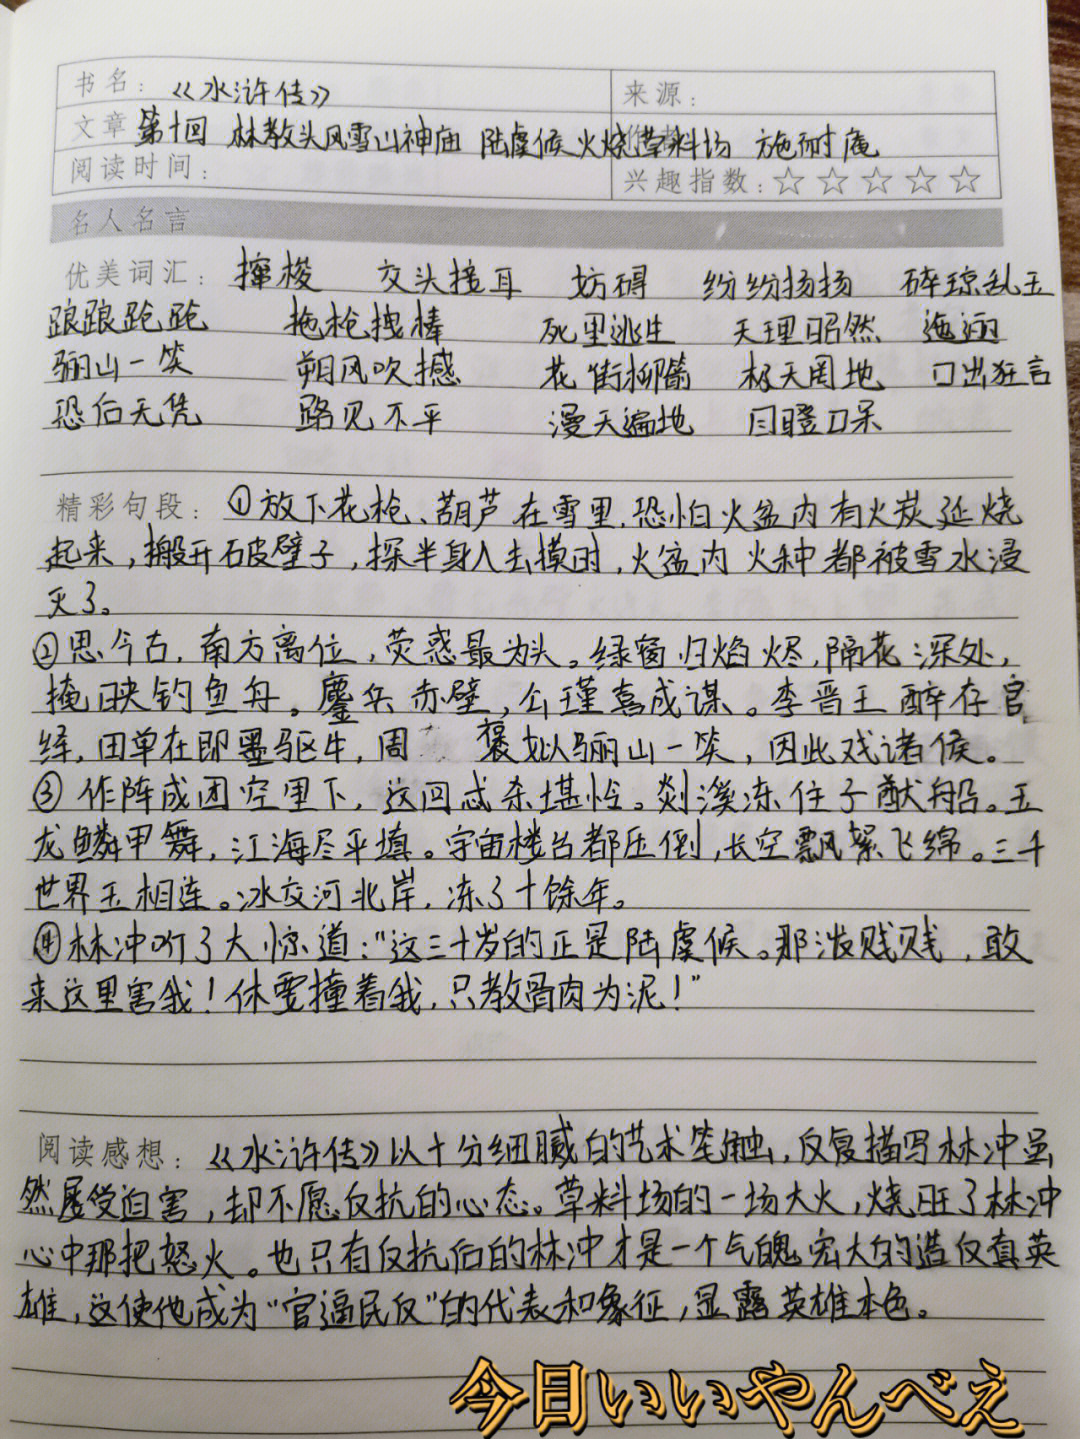 书名: 《水浒传》 来源:
文章 第十回 林教头风雪山神庙 陆虞候火烧草料场 施耐庵
阅读时间: 兴趣指数: ☆☆☆☆☆
名人名言
优美词汇: 撺梭 交头接耳 妨碍 纷纷扬扬 碎琼乱玉
踉踉跄跄 拖枪拽棒 死里逃生 天理昭然 迤逦
骊山一笑 朔风吹撼 花街柳 极天罔地 口出狂言
恐后无凭 路见不平 漫天遍地 目瞪口呆
精彩句段: ①放下花枪、葫芦在雪里,恐怕火盆内有火炭延烧
起来,搬开破壁子,探半身入去摸时,火盆内火种都被雪水浸
灭了。
②思今古,南方离位,荧惑最为头。绿窗归焰烬,隔花深处,
掩映钓鱼舟。鏖兵赤壁,公瑾喜成谋。李晋王醉存宫
绛,田单在即墨驱牛,周 褒姒骊山一笑,因此戏诸侯。
③作阵成团空里下,这回忒杀堪怜。剡溪冻住子猷船。玉
龙鳞甲舞,江海尽平填。宇宙楼台都压倒,长空飘絮飞绵。三千
世界玉相连。冰交河北岸,冻了十馀年。
④林冲听了大惊道:“这三十岁的正是陆虞候。那泼贱贱,敢
来这里害我!休要撞着我,只教骨肉为泥!”
阅读感想: 《水浒传》以十分细腻的艺术笔触,反复描写林冲虽
然屡受迫害,却不愿反抗的心态。草料场的一场大火,烧旺了林冲
心中那把怒火。也只有反抗后的林冲才是一个气魄宏大的造反真英
雄,这使他成为“官逼民反”的代表和象征,显露英雄本色。
今日いいやんべえ